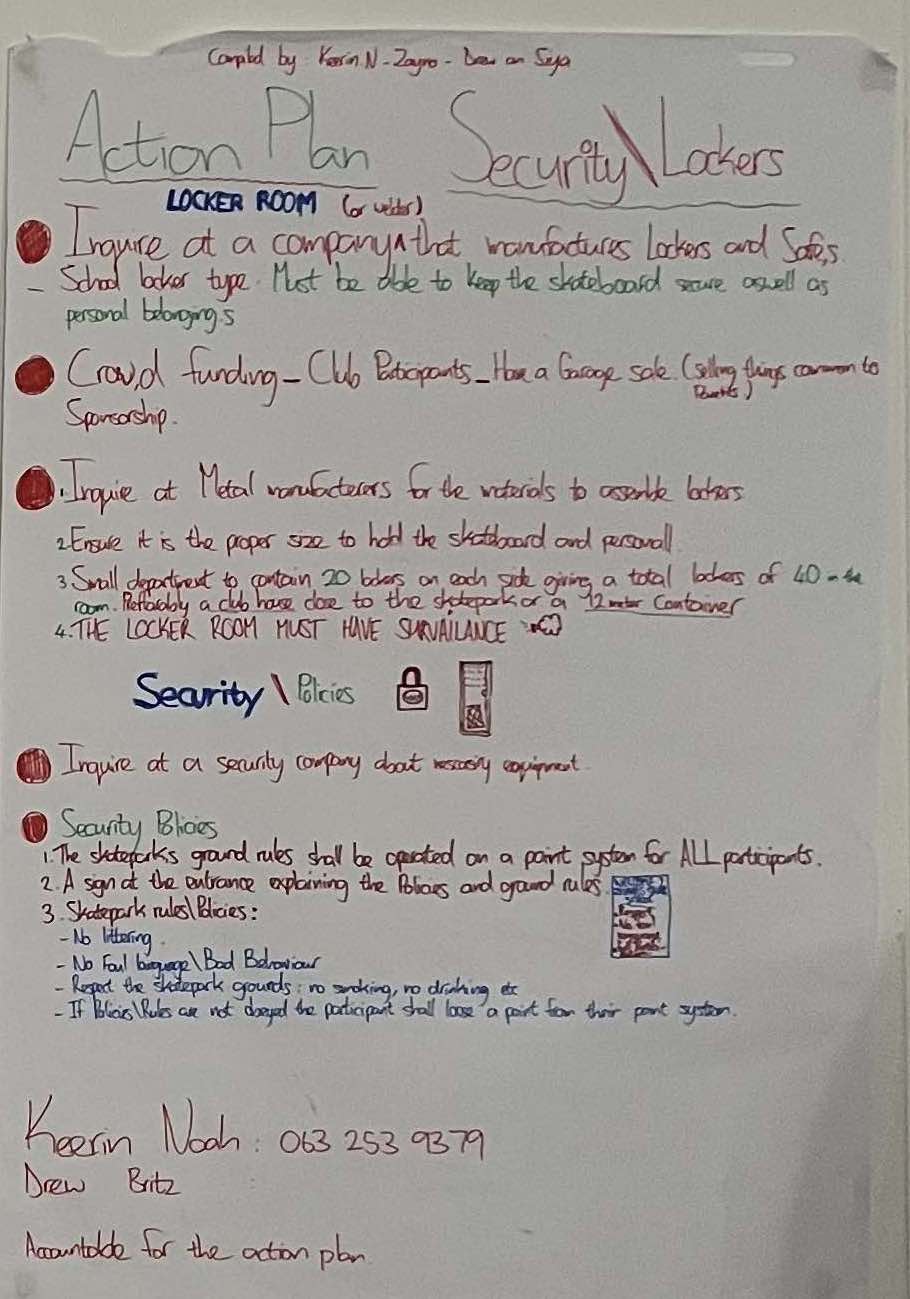 Compild by: Keerin.N - Zayno - Drew an Seya
Action Plan Security\Lockers
LOCKER ROOM (or welder)
Inquire at a company^that manufactures lockers and Safe,s.
- School locker type. Must be able to keep the skateboard secure aswell as
personal belonging.s
Crow,d funding - Club Participants - Have a Garage sale. (selling things common to
Sponsorship.
1. Inquire at Metal manufacterers for the materials to assemble lockers
2. Ensure it is the proper size to hold the skateboard and personall
3. Small department to contain 20 lockers on each side giving a total lockers of 40 in the
room. Preffarably a club house close to the skatepark or a 12 meter Container
4. THE LOCKER ROOM MUST HAVE SURVAILANCE
Security \ Policies
Inquire at a security company about equipment.
Security Policies
1. The skateparks ground rules shall be operated on a point system for ALL participants.
2. A sign at the entrance explaining the Policies and ground rules.
3. Skatepark rules\Policies:
- No littering.
- No Foul language\Bad Behaviour
- Respect the skatepark grounds: no smoking, no drinking etc
- If Policies\Rules are not obeyed the participant shall loose a point from their point system.
Keerin Noah: 063 253 9379
Drew Britz
Accountable for the action plan